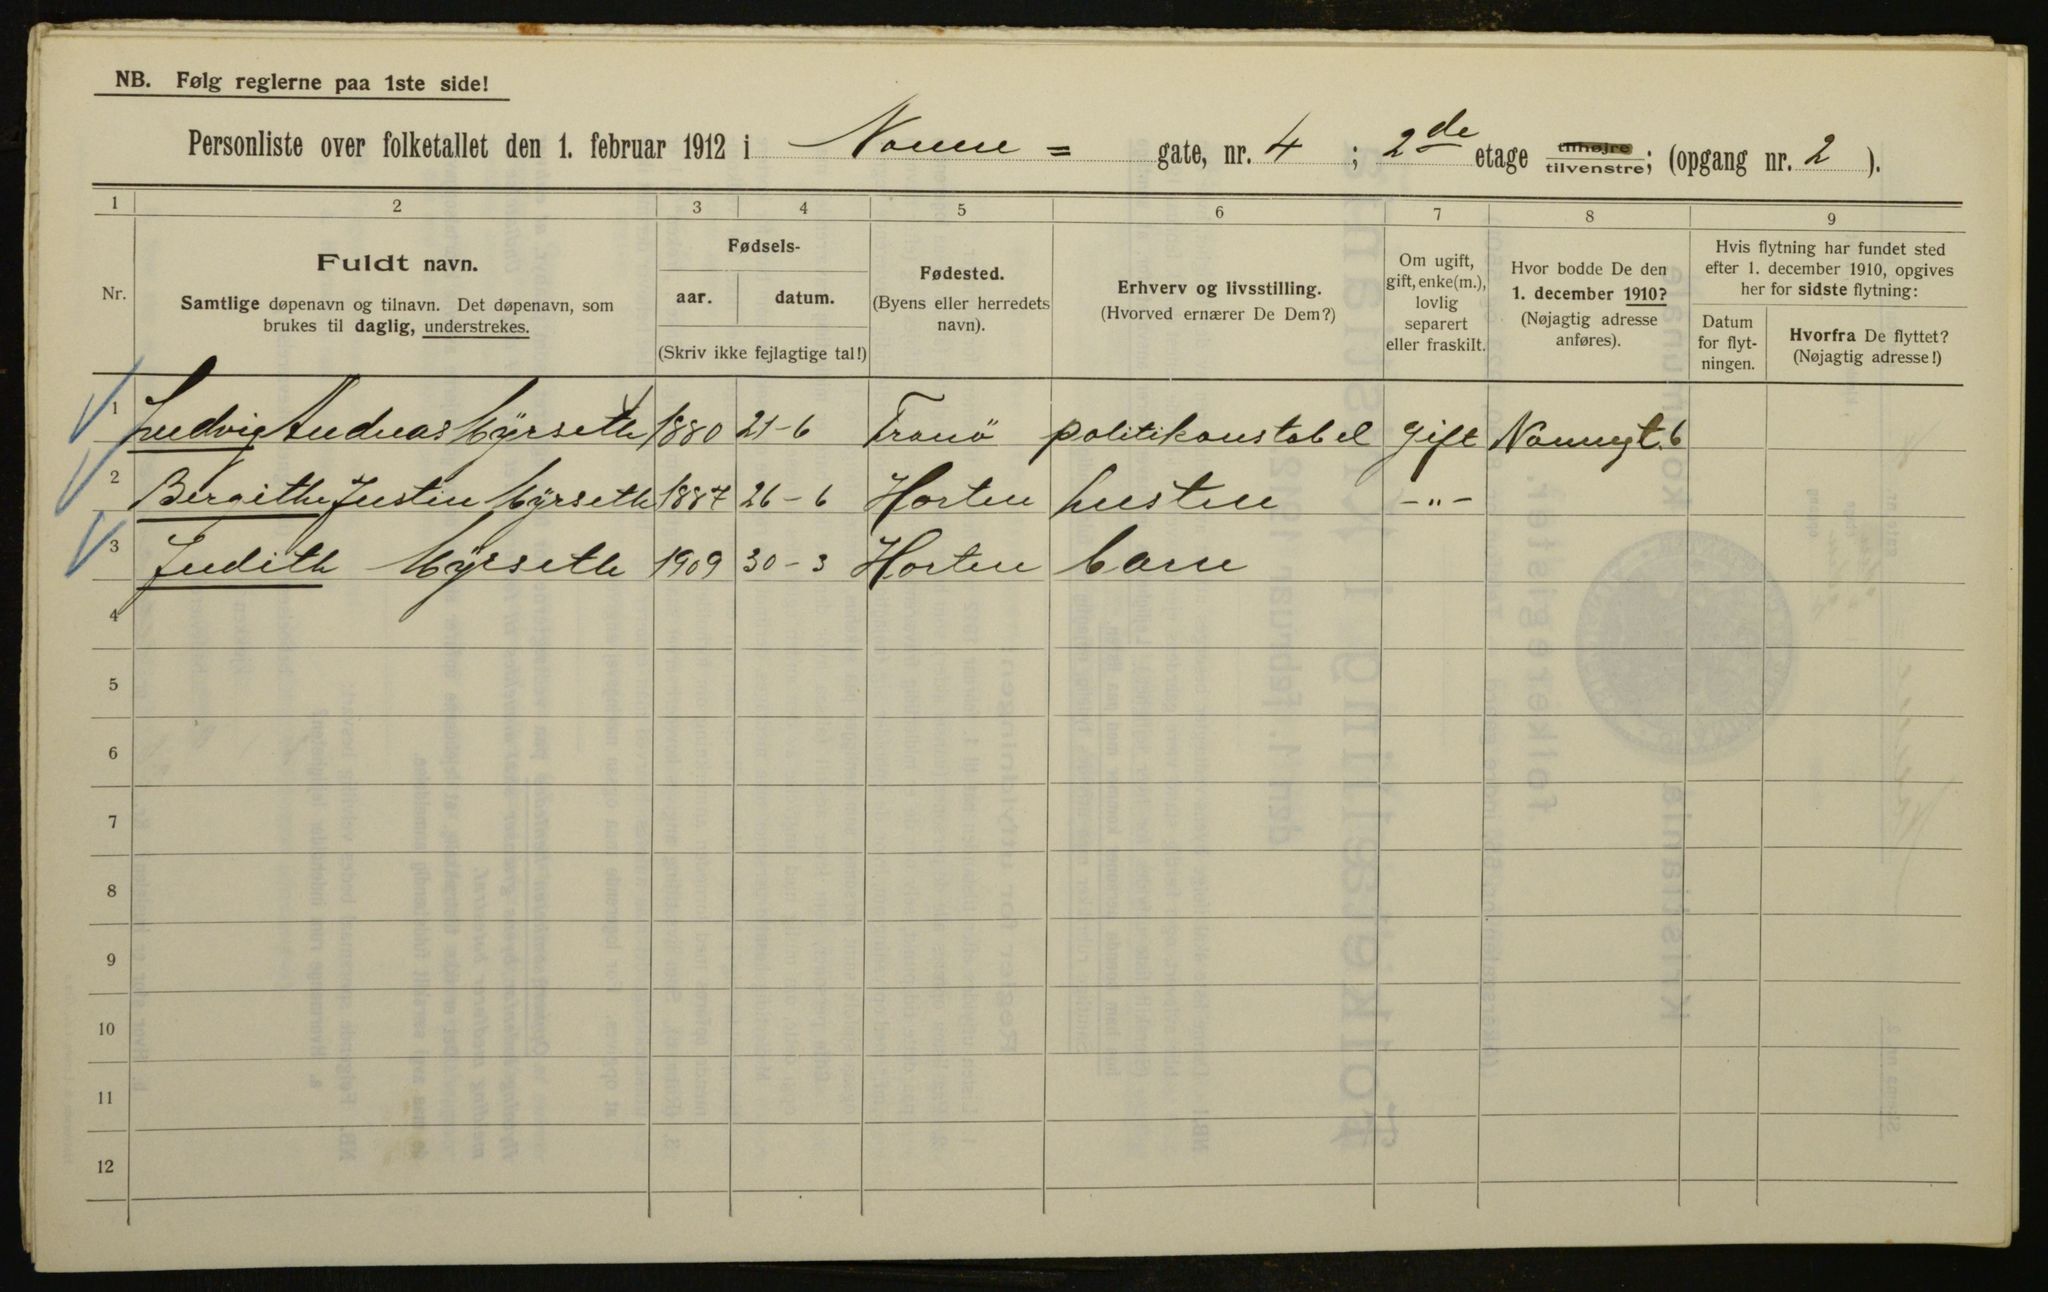 NB. Følg reglerne paa 1ste side!
Personliste over folketallet den 1. februar 1912 i Nonne = gate, nr. 4 ; 2de etage tilhøjre tilvenstre; (opgang nr. 2 ).
1 2 3 4 5 6 7 8 9
Nr.
Fuldt navn.
Samtlige døpenavn og tilnavn. Det døpenavn, som
brukes til daglig, understrekes.
Fødsels-
aar. datum.
(Skriv ikke fejlagtige tal!)
Fødested.
(Byens eller herredets
navn).
Erhverv og livsstilling.
(Hvorved ernærer De Dem?)
Om ugift,
gift, enke(m.),
lovlig
separert
eller fraskilt.
Hvor bodde De den
1. december 1910?
(Nøjagtig adresse
anføres).
Hvis flytning har fundet sted
efter 1. december 1910, opgives
her for sidste flytning:
Datum
for flyt-
ningen.
Hvorfra De flyttet?
(Nøjagtig adresse!)
1 Ludvig Andreas Myrseth 1880 21-6 Tranö politikonstabel gift Nonnegt. 6
2 Bergithe Justin Myrseth 1887 26-6 Horten hustru -"-
3 Judith Myrseth 1909 30-3 Horten barn
4
5
6
7
8
9
10
11
12